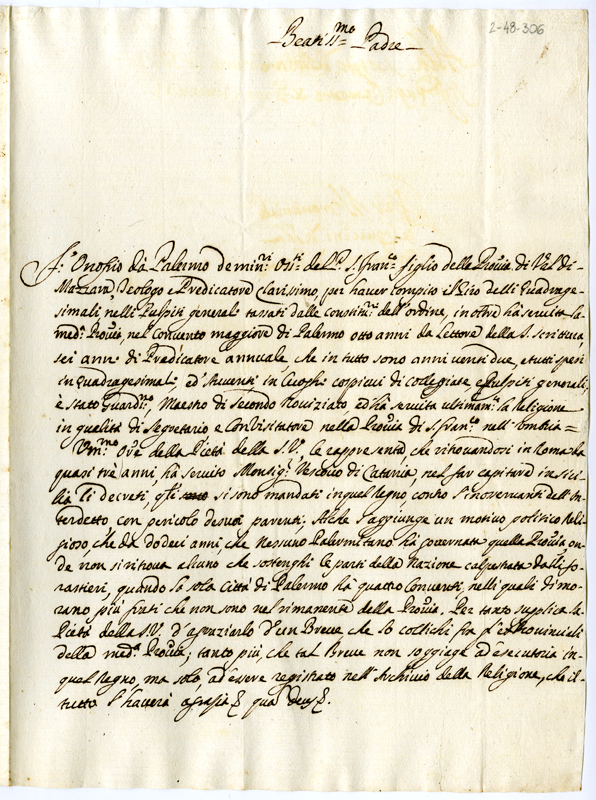 2-48-306
Beatiss.mo Padre
F. Onofrio da Palermo de min.ri Oss.ti del P. S. Fran.co figlio della Prouia. di Val di
Mazzara, Teologo e Predicatore Clarissimo, per hauer compito il Giro delli Quadrage-
simali, nelli Pulpiti generali tassati dalle constitu.ni dell'ordine, inoltre hà seruita la
med.a Prouia, nel Conuento maggiore di Palermo otto anni da Lettore della S. Scrittura,
sei anni di Predicatore annuale, che in tutto sono anni venti due, e tutti spesi
in Quadragesimali, ed'Auuenti in luoghi cospicui di collegiate, e Pulpiti generali;
è stato Guard.no, Maestro di Secondo Nouiziato ed hà seruita ultimam.te la Religione
in qualità di Segretario e Con Visitatore nella Prouia di S. Fran.co nell'Ombria=
Vm.mo Ore della Pietà della S. V., le rappresenta che ritrouandosi in Roma hà
quasi trè anni, hà seruito Monsig.r Vescouo di Catania, nel far capitare in Sici-
lia li decreti, che si sono mandati in quel Regno contro l'inosseruanti dell'In-
terdetto, con pericolo de suoi parenti; Al che s'aggiunge un motiuo politico Reli-
gioso, che da dodeci anni, che nessuno Palermitano hà gouernata quella Prouia on-
de non si ritroua alcuno che sostenghi le parti della Nazione calpestrata dalli fo-
rastieri, quando la sola Città di Palermo hà quattro Conuenti, nelli quali dimo-
rano più frati che non sono nel rimanente della Prouia. Per tanto supplica la
Pietà della S. V. d'agraziarlo d'un Breue che lo collichi fra l'ex Prouinciali
della med.a Prouia; tanto più, che tal Breue non soggiege ad esecutoria in
quel Regno, ma solo, ad essere registrato nell'Archiuio della Religione, che il
tutto l'hauerà a grazia quã Deus.